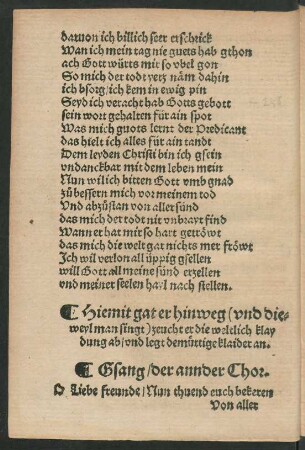 daruon ich billich seer erschrick
Wan ich mein tag nie guets hab gthon
ach Gott würts mir so vbel gon
So mich der todt yetz näm dahin
ich bsorg / ich kem in ewig pin
Seyd ich veracht hab Gotts gebott
sein wort gehalten für ain spot
Was mich guots lernt der Predicant
das hielt ich alles für ain tandt
Dem leyden Christi bin ich gsein
vndanckbar mit dem leben mein
Nun wil ich bitten Gott vmb gnad
zů bessern mich vor meinem tod
Vnd abzůstan von aller sünd
das mich der todt nit vnbrayt find
Wann er hat mir so hart getröwt
das mich die welt gat nichts mer fröwt
Ich wil verlon all üppig gsellen
will Gott all meine sünd erzellen
vnd meiner seelen hayl nach stellen.
¶ Hiemit gat er hinweg (vnd die-
weyl man singt) zeucht er die weltlich klay
dung ab / vnd legt demůtige klaider an.
¶ Gsang / der annder Chor.
O Liebe freunde / Nun thuend euch bekeren
Von aller